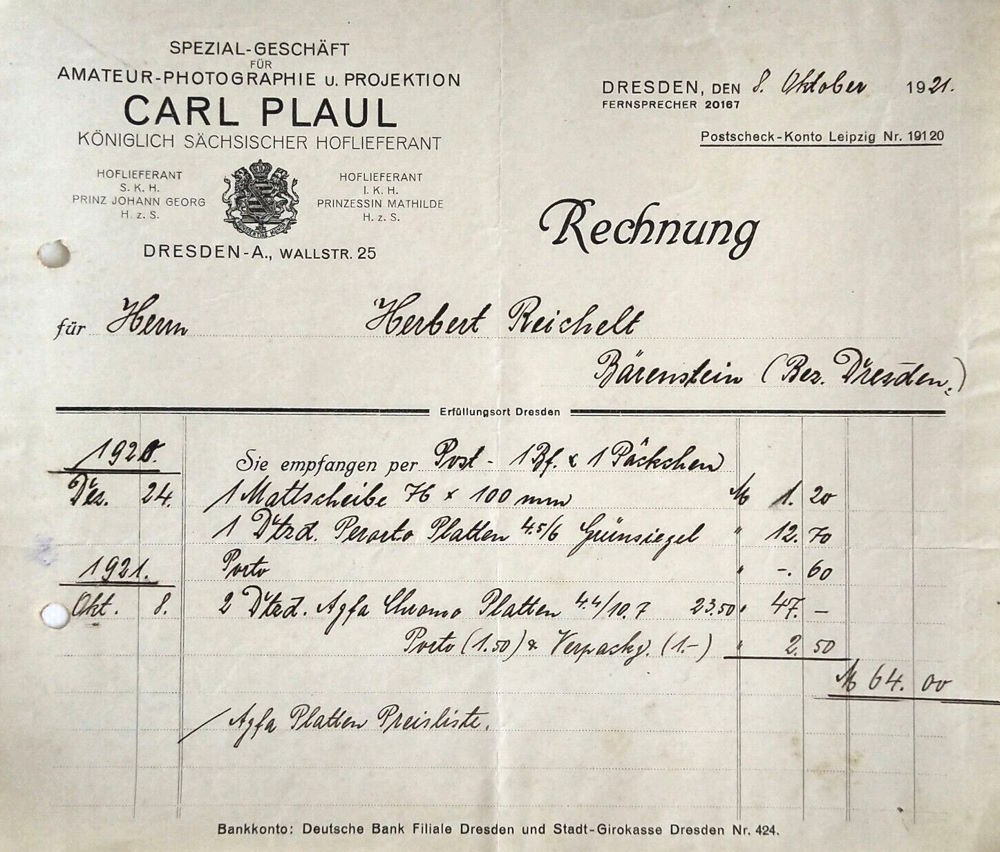 SPEZIAL-GESCHÄFT
FÜR
AMATEUR-PHOTOGRAPHIE u. PROJEKTION
CARL PLAUL
KÖNIGLICH SÄCHSISCHER HOFLIEFERANT
HOFLIEFERANT
S. K. H.
PRINZ JOHANN GEORG
H. z. S.
HOFLIEFERANT
I. K. H.
PRINZESSIN MATHILDE
H. z. S.
DRESDEN-A., WALLSTR. 25
DRESDEN, DEN 8. Oktober 1921.
FERNSPRECHER 20167
Postscheck-Konto Leipzig Nr. 19120
Rechnung
für Herrn Herbert Reichelt
Bärenstein (Bez. Dresden.)
Erfüllungsort Dresden
1920. Sie empfangen per Post - 1 Bf. & 1 Päckchen
Dez. 24. 1 Mattscheibe 76 x 100 mm M 1. 20
1 Dtzd. Perorto Platten 4.5/6 Grünsiegel " 12. 70
1921. Porto " -. 60
Okt. 8. 2 Dtzd. Agfa Chromo Platten 4.4/10.7 23.50 " 47. -
Porto (1.50) & Verpackg. (1.-) " 2. 50
M 64. 00
/ Agfa Platten Preisliste.
Bankkonto: Deutsche Bank Filiale Dresden und Stadt-Girokasse Dresden Nr. 424.